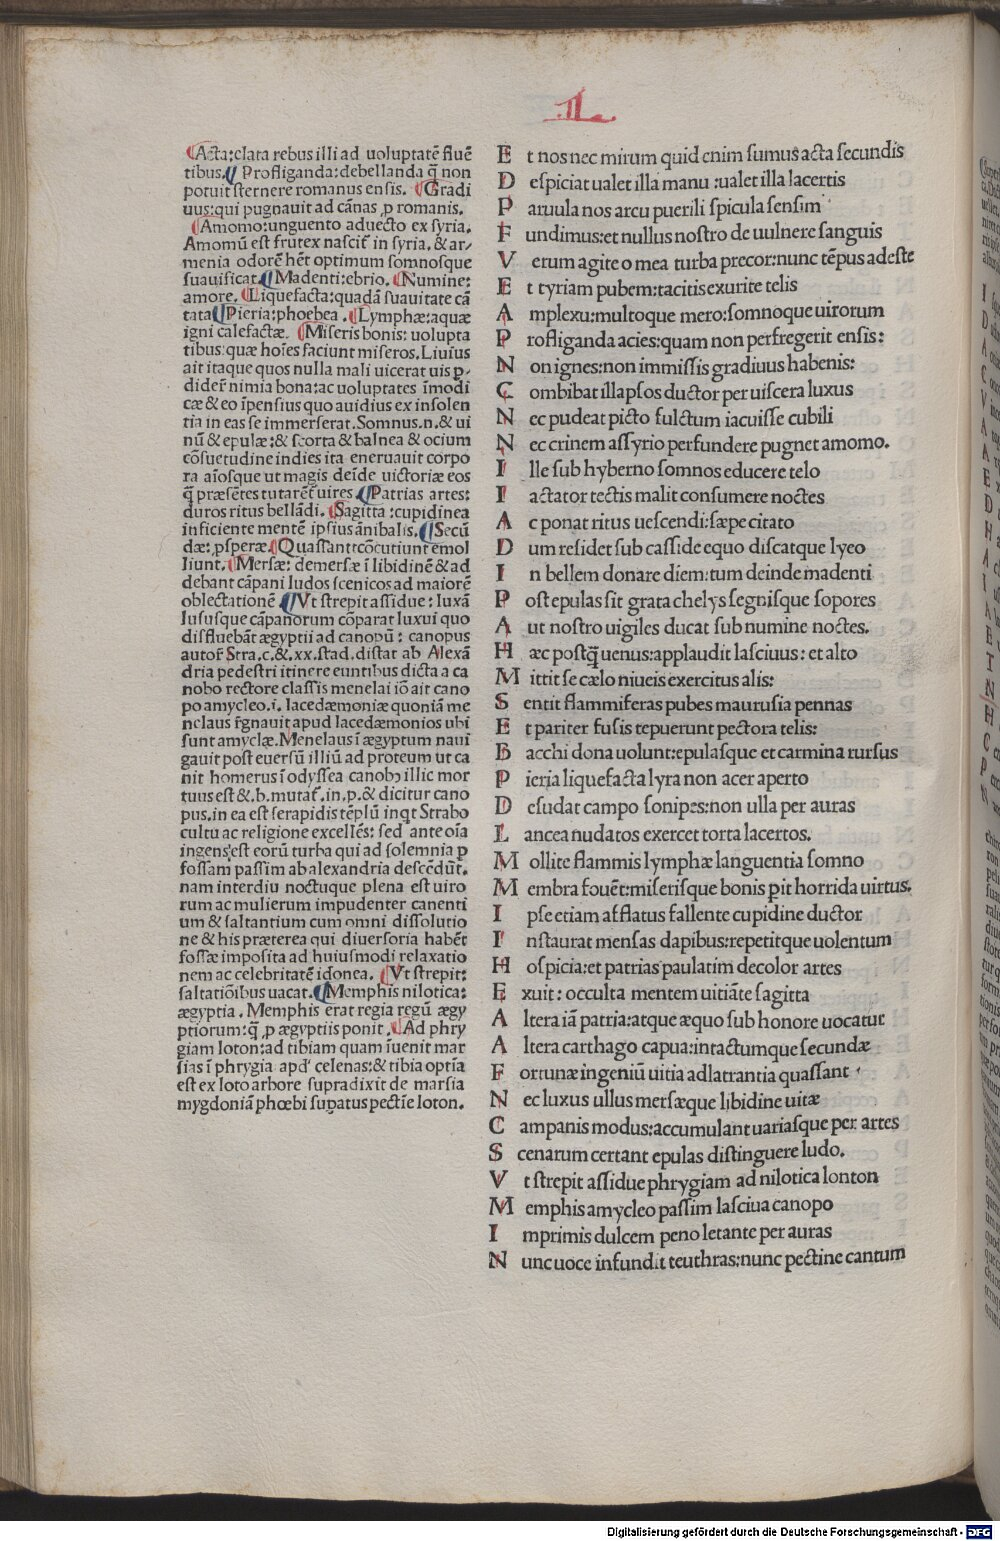 .II.
Acta:clara rebus illi ad uoluptatē fluē
tibus. Profliganda:debellanda q̄ non
potuit sternere romanus ensis. Gradi
uus:qui pugnauit ad cānas ꝓ romanis.
Amomo:unguento aduecto ex syria.
Amomū est frutex nascit᷑ in syria. & ar-
menia odorē hēt optimum somnosque
suauificat. Madenti:ebrio. Numine:
amore. Liquefacta:quadā suauitate cā
tata Pieria:phoebea. Lymphæ:aquæ
igni calefactæ. Miseris bonis: uolupta
tibus quæ hoīes faciunt miseros. Liuius
ait itaque quos nulla mali uicerat uis ꝑ-
dider᷑ nimia bona:ac uoluptates īmodi
cæ & eo īpensius quo auidius ex insolen
tia in eas se immerserat. Somnus.n.& ui
nū & epulæ:& scorta & balnea & ocium
cōsuetudine indies ita eneruauit corpo
ra aīosque ut magis deīde uictoriæ eos
q̄ præsētes tutarēt᷑ uires. Patrias artes:
duros ritus bellādi. Sagitta:cupidinea
inficiente mentē ipsius ānibalis. Secū
dæ:ꝓsperæ. Quassant:cōcutiunt emol
liunt. Mersæ: demersæ ī libidinē & ad
debant cāpani ludos scenicos ad maiorē
oblectationē Vt strepit assidue: luxā
lususque cāpanorum cōparat luxui quo
disfluebāt ægyptii ad canopū: canopus
autor᷑ Stra.c.&.xx.stad.distat ab Alexā
dria pedestri itinere euntibus dicta a ca
nobo rectore classis menelai iō ait cano
po amycleo.i. lacedæmoniæ quoniā me
nelaus r̄gnauit apud lacedæmonios ubi
sunt amyclæ. Menelaus ī ægyptum naui
gauit post euersū illiū ad proteum ut ca
nit homerus ī odyssea canobꝰ illic mor
tuus est &.b.mutat᷑.in.p.& dicitur cano
pus.in ea est serapidis tēplū inqt Strabo
cultu ac religione excellēs: sed ante oīa
ingens est eorū turba qui ad solemnia ꝑ
fossam passim ab alexandria descēdūt.
nam interdiu noctuque plena est uiro
rum ac mulierum impudenter canenti
um & saltantium cum omni dissolutio
ne & his præterea qui diuersoria habēt
fossæ imposita ad huiusmodi relaxatio
nem ac celebritatē idonea. Vt strepit:
saltatiōibus uacat. Memphis nilotica:
ægyptia. Memphis erat regia regū ægy
ptiorum:q̄ ꝓ ægyptiis ponit᷑. Ad phry
giam loton:ad tibiam quam īuenit mar
sias ī phrygia apd' celenas:& tibia optīa
est ex loto arbore supra dixit de marsia
mygdoniā phœbi supatus pectīe loton.
E t nos nec mirum quid enim sumus acta secundis
D espiciat ualet illa manu :ualet illa lacertis
P aruula nos arcu puerili spicula sensim
F undimus:et nullus nostro de uulnere sanguis
V erum agite o mea turba precor:nunc tēpus adeste
E t tyriam pubem:tacitis exurite telis
A mplexu:multoque mero:somnoque uirorum
P rofliganda acies:quam non perfregerit ensis:
N on ignes:non immissis gradiuus habenis:
C ombibat illapsos ductor per uiscera luxus
N ec pudeat picto fulctum iacuisse cubili
N ec crinem assyrio perfundere pugnet amomo.
I lle sub hyberno somnos educere telo
I actator tectis malit consumere noctes
A c ponat ritus uescendi:sæpe citato
D um residet sub casside equo discatque lyeo
I n bellem donare diem:tum deinde madenti
P ost epulas sit grata chelys segnisque sopores
A ut nostro uigiles ducat sub numine noctes.
H æc postq̄ uenus:applaudit lasciuus: et alto
M ittit se cælo niueis exercitus alis:
S entit flammiferas pubes maurusia pennas
E t pariter fusis tepuerunt pectora telis:
B acchi dona uolunt:epulasque et carmina rursus
P ieria liquefacta lyra non acer aperto
D esudat campo sonipes:non ulla per auras
L ancea nudatos exercet torta lacertos.
M ollite flammis lymphæ languentia somno
M embra fouēt:miserisque bonis pit horrida uirtus.
I pse etiam afflatus fallente cupidine ductor
I nstaurat mensas dapibus:repetitque uolentum
H ospicia:et patrias paulatim decolor artes
E xuit: occulta mentem uitiāte sagitta
A ltera iā patria:atque æquo sub honore uocatur
A ltera carthago capua:intactumque secundæ
F ortunæ ingeniū uitia adlatrantia quassant
N ec luxus ullus mersæque libidine uitæ
C ampanis modus:accumulant uariasque per artes
S cenarum certant epulas distinguere ludo.
V t strepit assidue phrygiam ad nilotica lonton
M emphis amycleo passim lasciua canopo
I mprimis dulcem peno letante per auras
N unc uoce infundit teuthras:nunc pectine cantum
Digitalisierung gefördert durch die Deutsche Forschungsgemeinschaft - DFG